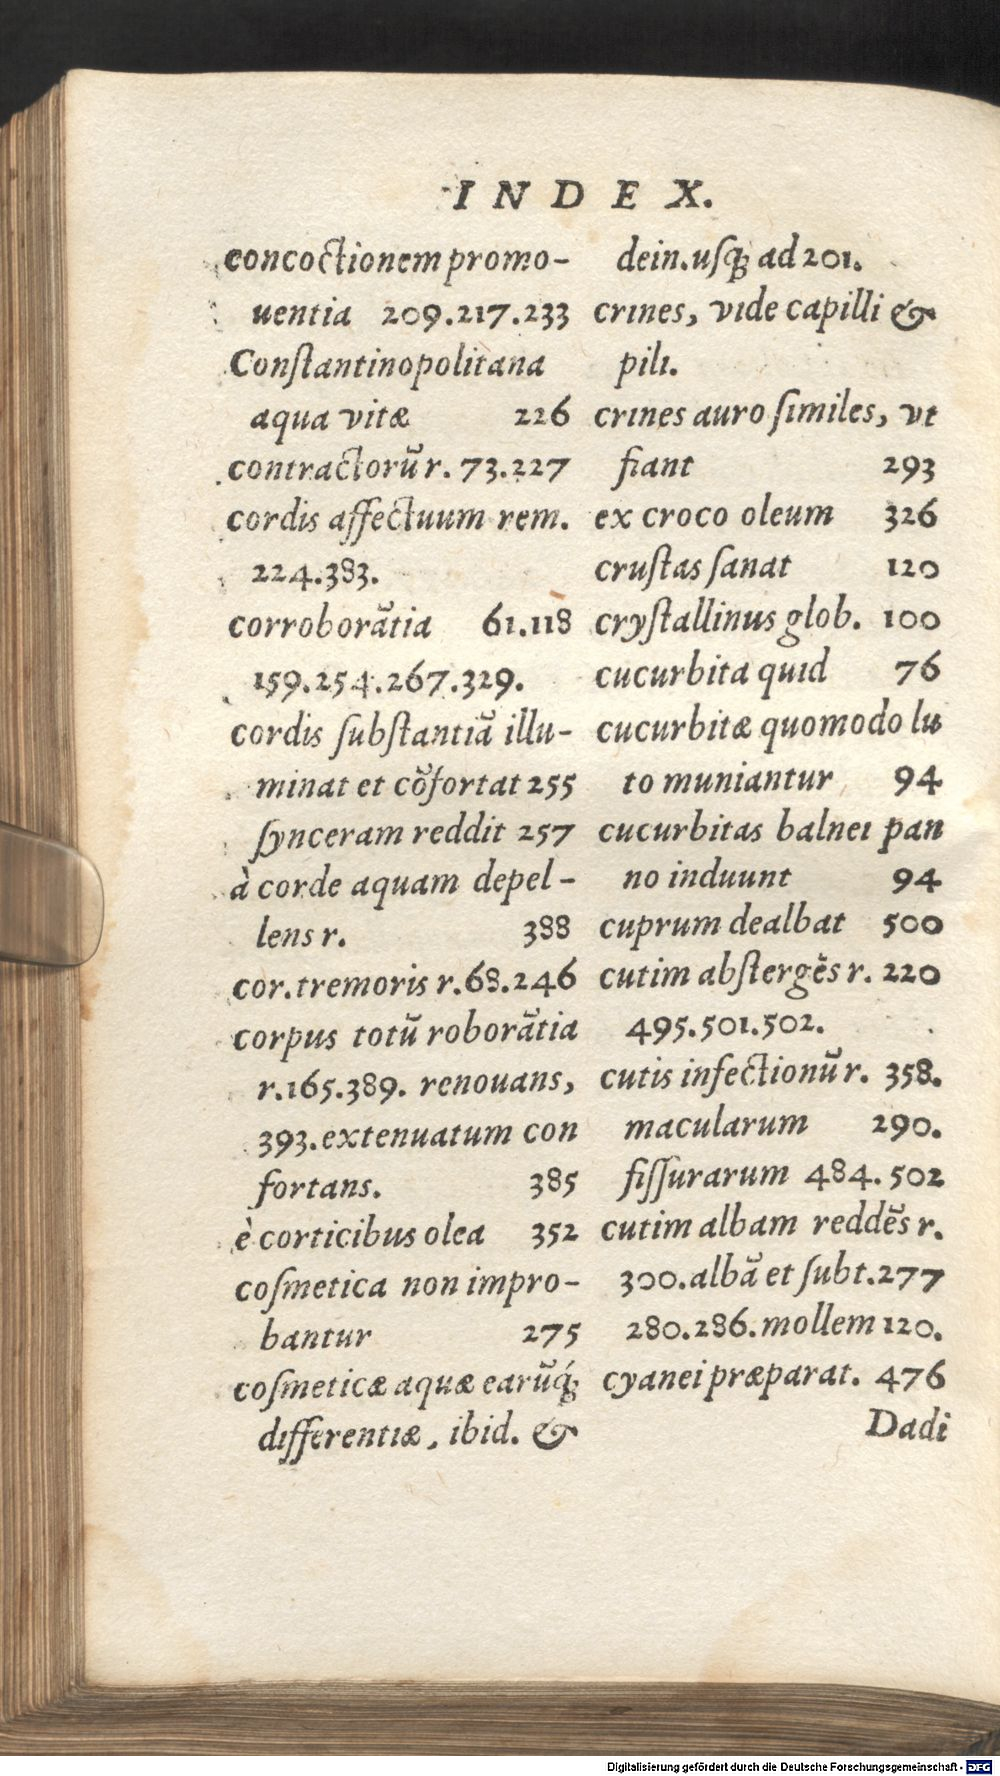 INDEX.
concoctionem promo-
uentia 209.217.233
Constantinopolitana
aqua vitæ 226
contractorũ r. 73.227
cordis affectuum rem.
224.383.
corroborãtia 61.118
159.254.267.329.
cordis substantiã illu-
minat et cõfortat 255
synceram reddit 257
à corde aquam depel-
lens r. 388
cor. tremoris r. 68.246
corpus totũ roborãtia
r. 165.389. renouans,
393. extenuatum con
fortans. 385
è corticibus olea 352
cosmetica non impro-
bantur 275
cosmeticæ aquæ earũq́;
differentiæ, ibid. &
dein. usq; ad 201.
crines, vide capilli &
pili.
crines auro similes, vt
fiant 293
ex croco oleum 326
crustas sanat 120
crystallinus glob. 100
cucurbita quid 76
cucurbitæ quomodo lu
to muniantur 94
cucurbitas balnei pan
no induunt 94
cuprum dealbat 500
cutim abstergẽs r. 220
495.501.502.
cutis infectionũ r. 358.
macularum 290.
fissurarum 484.502
cutim albam reddẽs r.
300. albã et subt. 277
280.286. mollem 120.
cyanei præparat. 476
Dadi
Digitalisierung gefördert durch die Deutsche Forschungsgemeinschaft - DFG